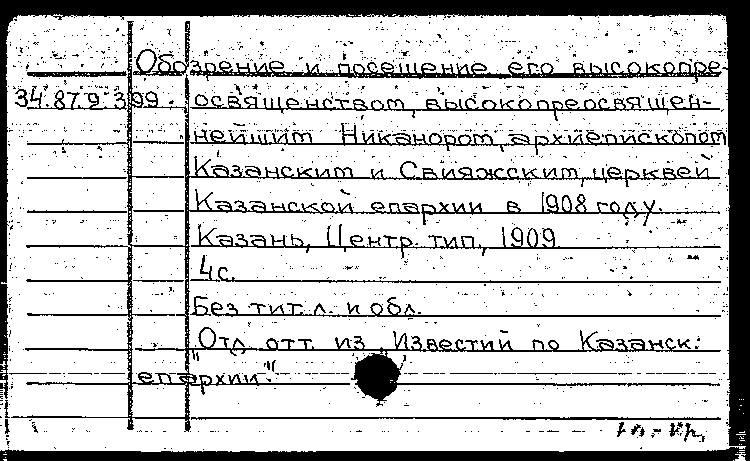 Обозрение и посещение его высокопре-
34.87.9.399. освященством, высокопреосвящен-
нейшим Никанором, архиепископом
Казанским и Свияжским, церквей
Казанской епархии в 1908 году.
Казань, Центр. тип., 1909.
4с.
Без тит. л. и обл.
Отд. отт. из „Известий по Казанск.
епархии".